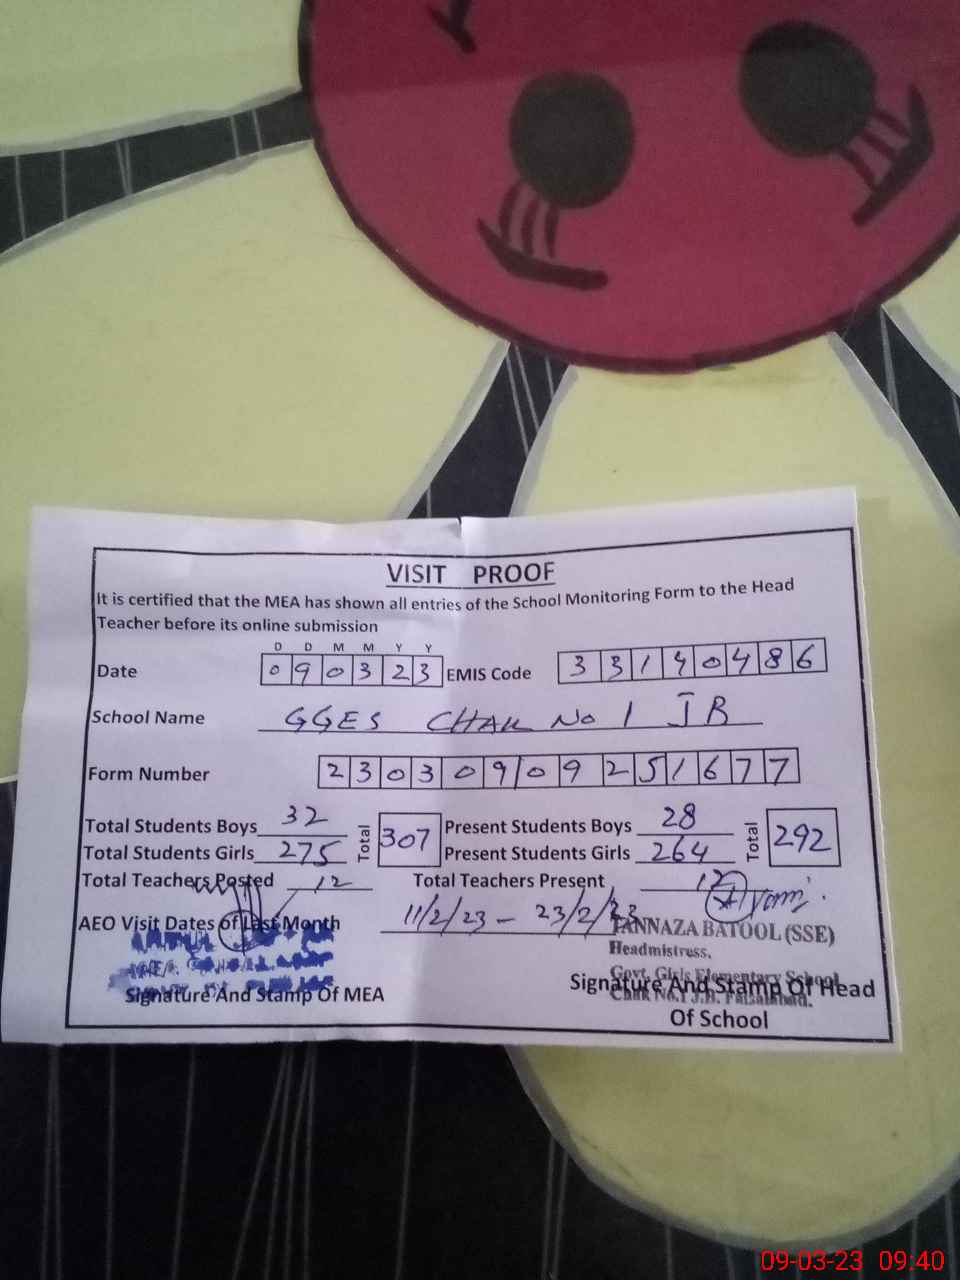 VISIT PROOF
It is certified that the MEA has shown all entries of the School Monitoring Form to the Head
Teacher before its online submission
D D M M Y Y
Date 090323 EMIS Code 33140486
School Name GGES CHAK No 1 JB
Form Number 2303090909251677
Total Students Boys 32 Total 307 Present Students Boys 28 Total 292
Total Students Girls 275 Present Students Girls 264
Total Teachers Posted 12 Total Teachers Present 12
AEO Visit Dates of Last Month 11/2/23 - 23/2/23
TANNAZA BATOOL (SSE)
Headmistress,
Govt. Girls Elementary School
Chak No.1 J.B. Faisalabad.
Signature And Stamp Of MEA
Signature And Stamp Of Head
Of School
09-03-23 09:40